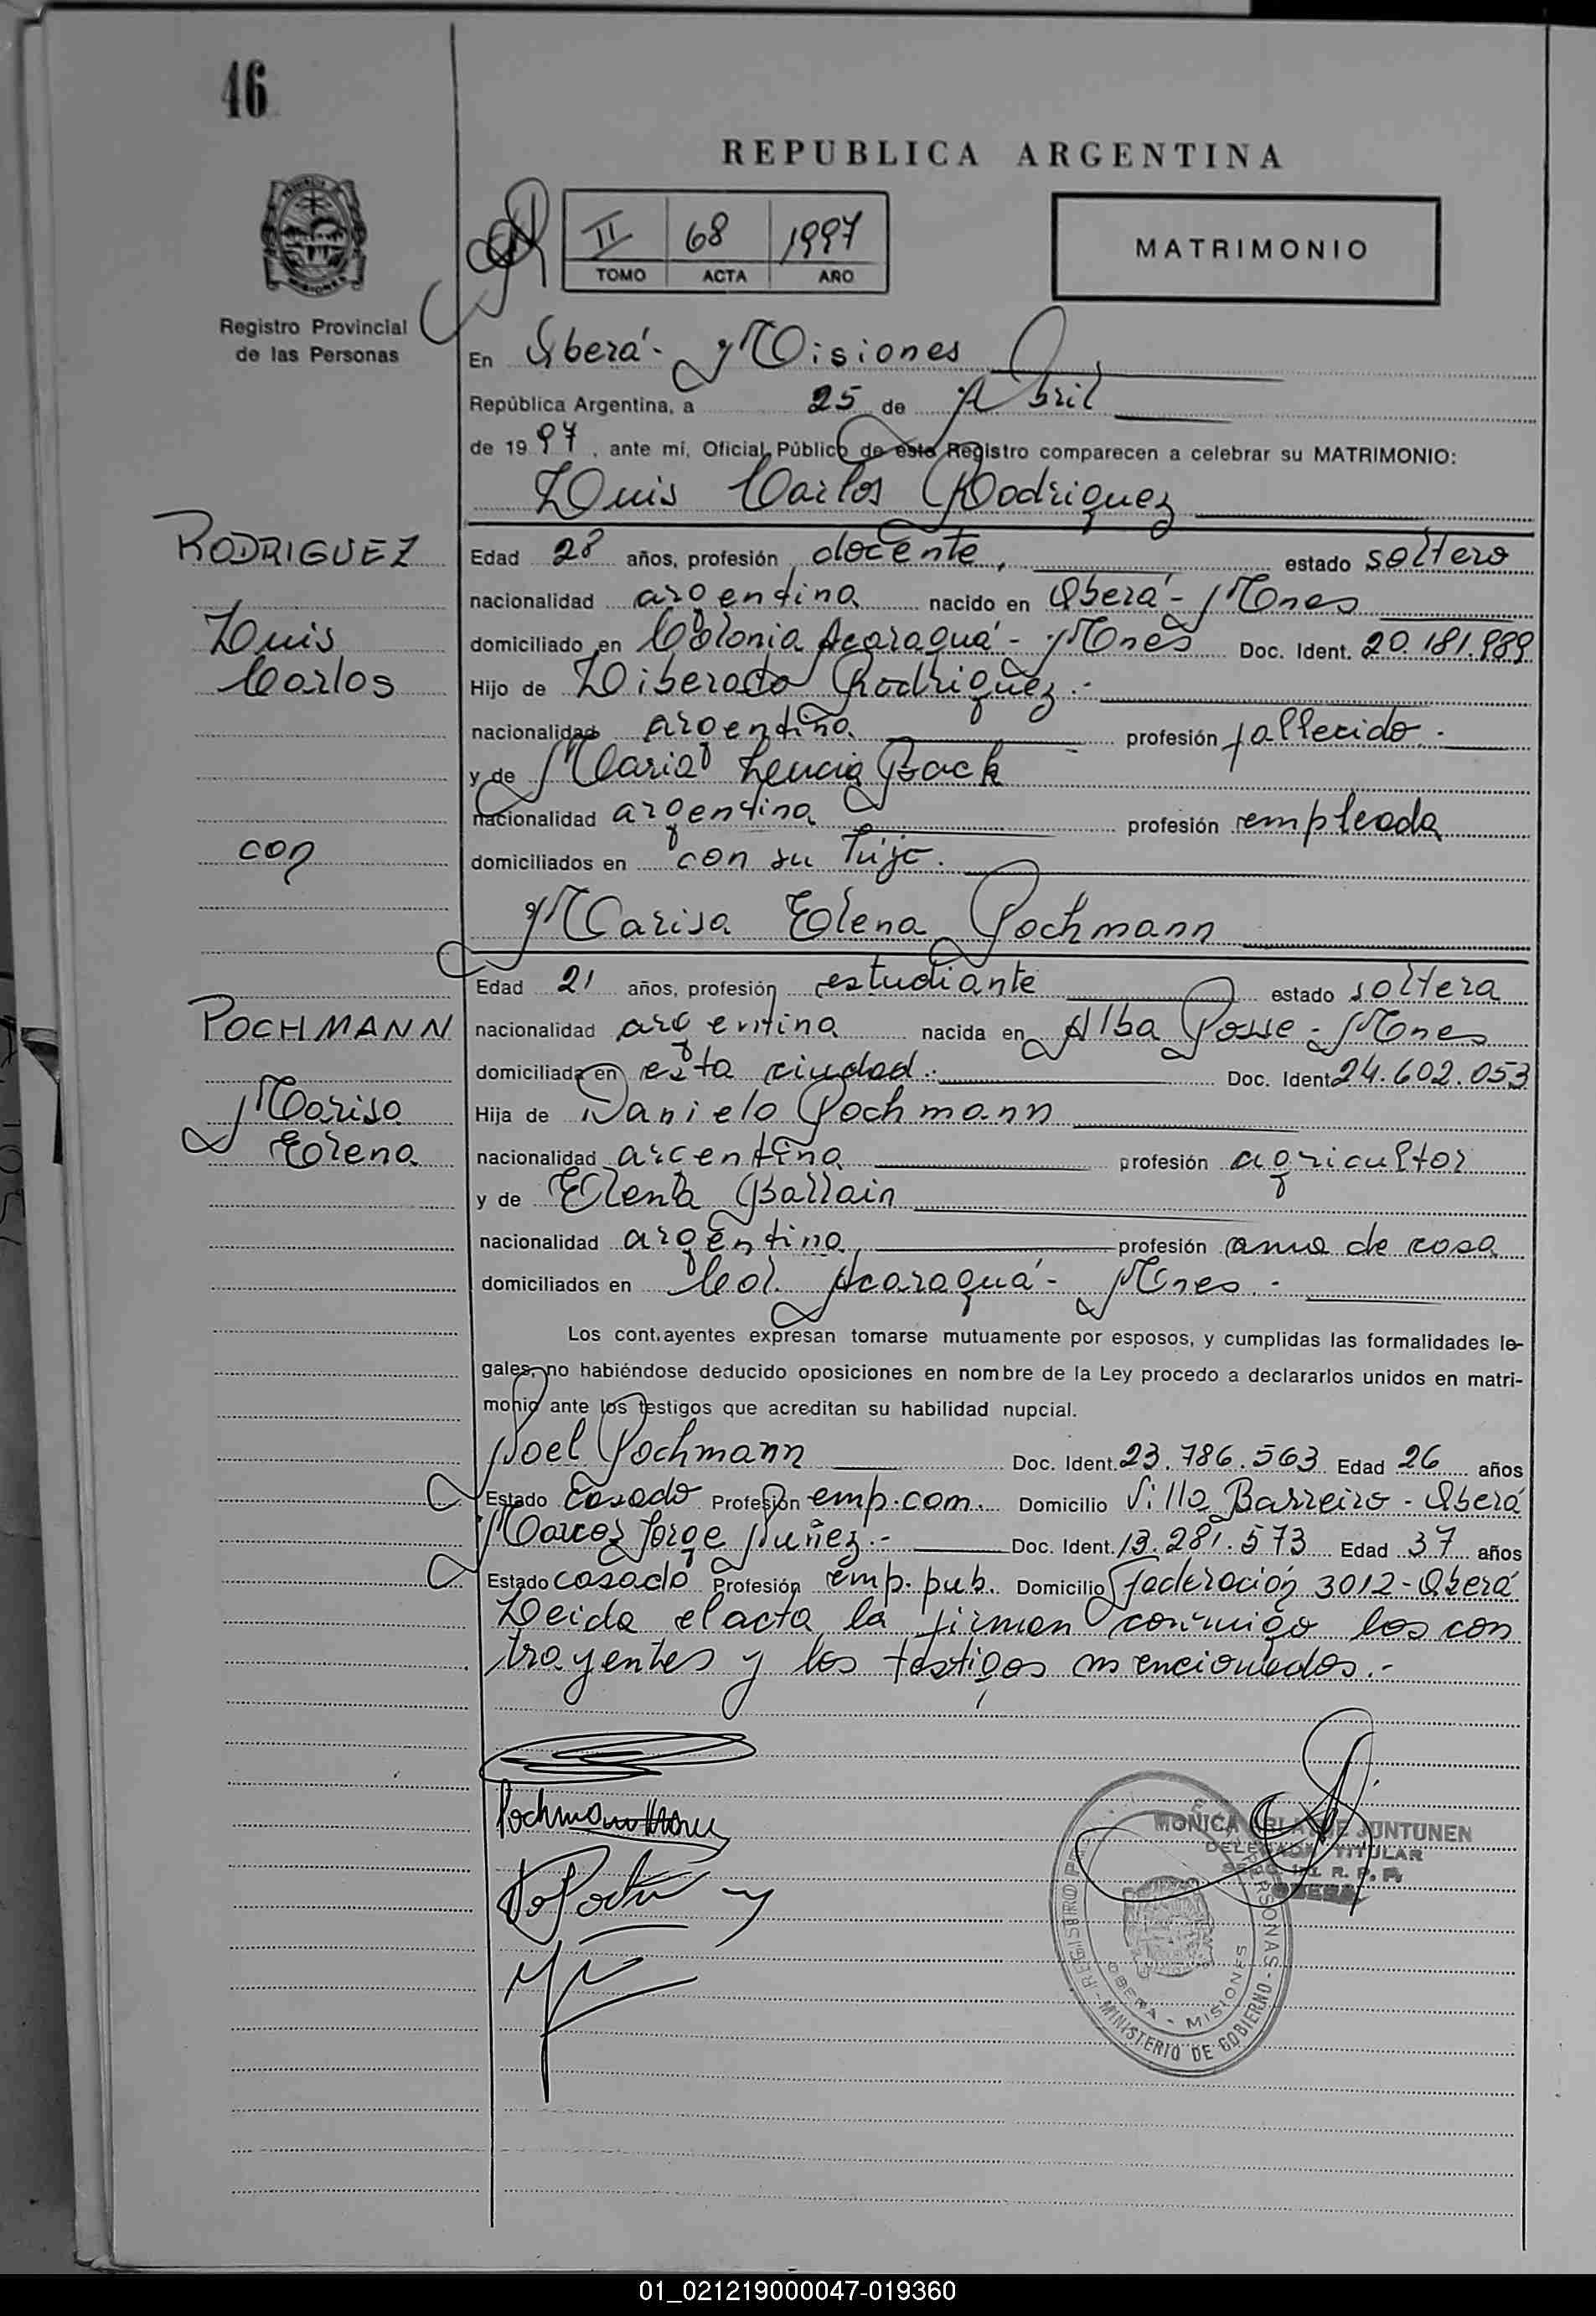 46
REPUBLICA ARGENTINA
II 68 1997
TOMO ACTA AÑO
MATRIMONIO
MISIONES
Registro Provincial
de las Personas
En Oberá - Misiones
República Argentina, a 25 de Abril
de 1997, ante mí, Oficial Público de este Registro comparecen a celebrar su MATRIMONIO:
Luis Carlos Rodriguez
RODRIGUEZ
Edad 28 años, profesión docente, estado soltero
nacionalidad argentina nacido en Oberá - Mnes
Luis
domiciliado en Colonia Acaraguá - Mnes Doc. Ident. 20.181.989
Carlos
Hijo de Liberato Rodriguez.-
nacionalidad argentina profesión fallecido.-
y de Maria Lencia Back
nacionalidad argentina profesión empleada
con
domiciliados en con su hijo.
Marisa Elena Pochmann
Edad 21 años, profesión estudiante estado soltera
POCHMANN
nacionalidad argentina nacida en Alba Posse - Mnes
domiciliada en esta ciudad.- Doc. Ident 24.602.053
Marisa
Hija de Danielo Pochmann
Elena
nacionalidad argentina profesión agricultor
y de Elenta Ballain
nacionalidad argentina profesión ama de casa
domiciliados en Col. Acaraguá - Mnes.-
Los cont.ayentes expresan tomarse mutuamente por esposos, y cumplidas las formalidades le-
gales, no habiéndose deducido oposiciones en nombre de la Ley procedo a declararlos unidos en matri-
monio ante los testigos que acreditan su habilidad nupcial.
Noel Pochmann Doc. Ident. 23.786.563 Edad 26 años
Estado Casado Profesión emp.com. Domicilio Villa Barreiro - Oberá
Marcos Jorge Nuñez.- Doc. Ident. 13.281.573 Edad 37 años
Estado casado Profesión emp.pub. Domicilio Federación 3012 - Oberá
Leida el acta la firman conmigo los con
trayentes y los testigos mencionados.-
MONICA JUNTUNEN
TITULAR
R. P. P.
OBERA
REGISTRO PERSONAS - MINISTERIO DE GOBIERNO -
OBERA - MISIONES
01_021219000047-019360